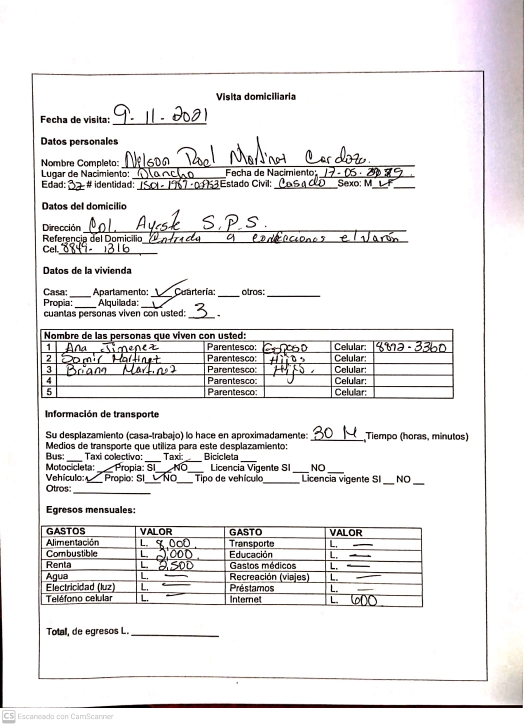 Visita domiciliaria
Fecha de visita: 9-11-2021
Datos personales
Nombre Completo: Nilson Martinez Cardozo.
Lugar de Nacimiento: Olancho Fecha de Nacimiento: 17-05-
Edad: 32 # identidad: 1501-1987- Estado Civil: Casado Sexo: M F
Datos del domicilio
Dirección Col. S.P.S.
Referencia del Domicilio Entrada a confecciones el Varón
Cel. 8849-1316
Datos de la vivienda
Casa: ____ Apartamento: ✓ Cuartería: ____ otros: ____
Propia: ____ Alquilada: ✓
cuantas personas viven con usted: 3.
Nombre de las personas que viven con usted:
1 Ana Jimenez Parentesco: Esposo Celular: 8892-3360
2 Samir Martinez Parentesco: Hijos Celular:
3 Briann Martinez Parentesco: Hijo. Celular:
4 Parentesco: Celular:
5 Parentesco: Celular:
Información de transporte
Su desplazamiento (casa-trabajo) lo hace en aproximadamente: 30 M Tiempo (horas, minutos)
Medios de transporte que utiliza para este desplazamiento:
Bus: ___ Taxi colectivo: ___ Taxi: ___ Bicicleta ___
Motocicleta: Propia: SI NO Licencia Vigente SI ___ NO ___
Vehículo: ✓ Propio: SI ✓ NO Tipo de vehículo______ Licencia vigente SI __ NO __
Otros: ____________
Egresos mensuales:
GASTOS VALOR GASTO VALOR
Alimentación L. 8,000 Transporte L. —
Combustible L. 2,000 Educación L. —
Renta L. 2,500 Gastos médicos L. —
Agua L. — Recreación (viajes) L. —
Electricidad (luz) L. — Préstamos L. —
Teléfono celular L. — Internet L. 600
Total, de egresos L. ______________
CS Escaneado con CamScanner